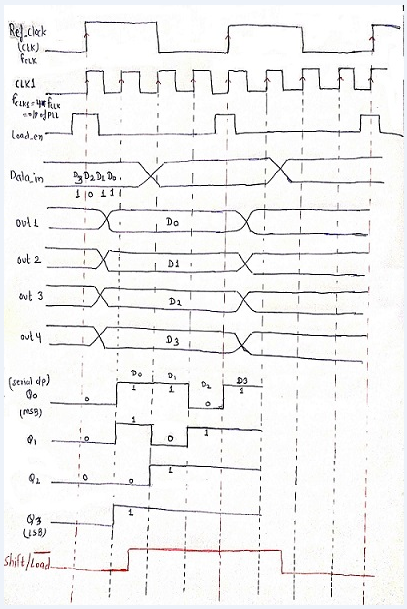 Ref_clock
(CLK)
fCLK
CLK1
fCLK1 = 4x fCLK
= o/p of PLL
Load_en
Data_in
D3 D2 D1 D0
1 0 1 1
out 1 D0
out 2 D1
out 3 D2
out 4 D3
(serial o/p)
Q0
(MSB)
D0 D1 D2 D3
0 1 1 0 1
Q1 0 1 0 1
Q2 0 0 1
Q3 1
(LSB)
Shift/Load